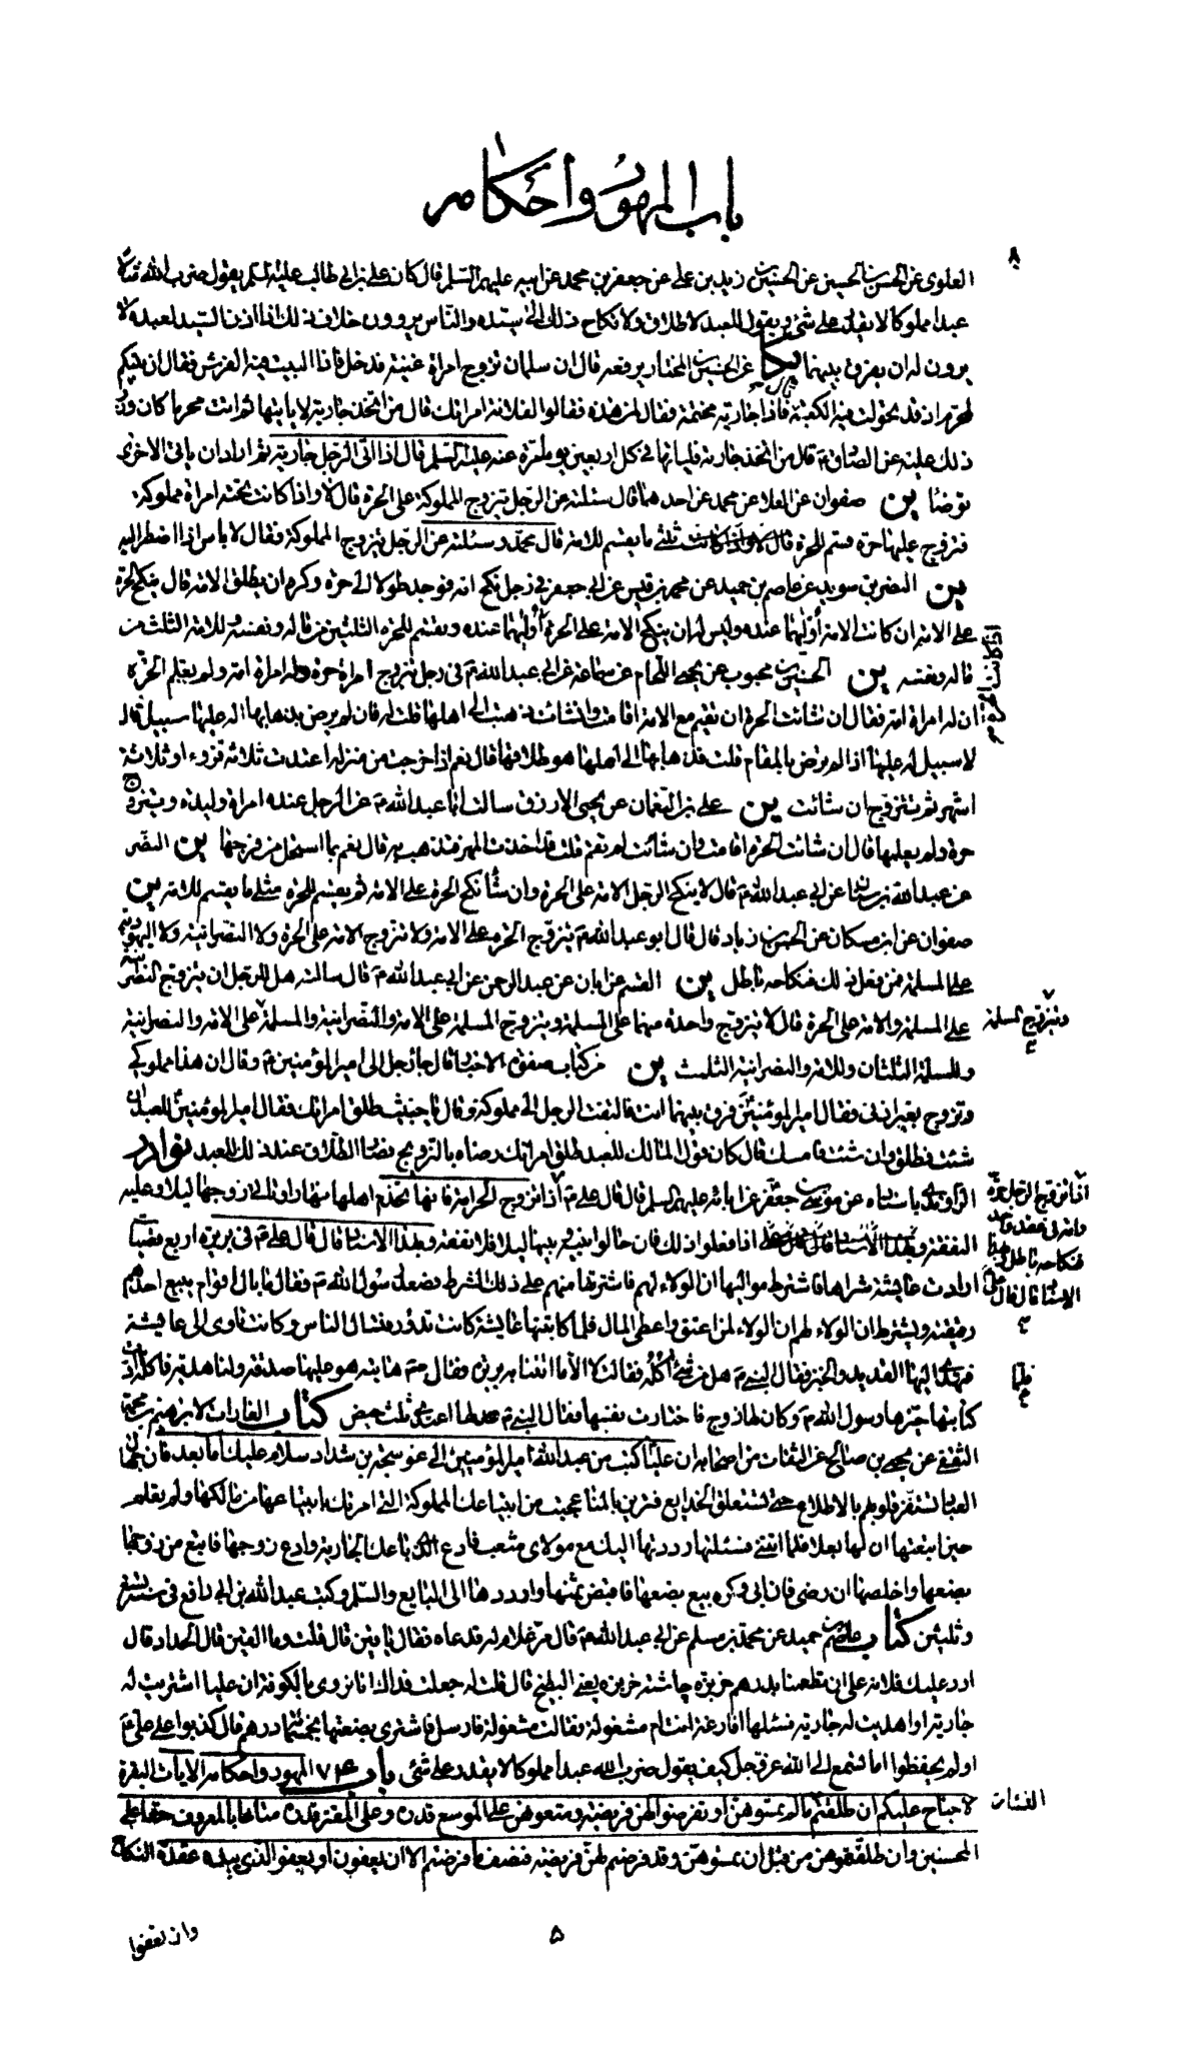 باب المهور وأحكامه
العلوى عن الحسن بن الحسين عن الحسين بن زيد بن على عن جعفر بن محمد عن ابيه عليهم السلم قال كان على بن ابى طالب عليه السلم يقول ضرب الله مثلا
عبدا مملوكا لا يقدر على شئ ويقول للعبد لا طلاق ولا نكاح ذلك الى سيده والناس يروون خلاف ذلك اذا اذن السيد لعبده لا
يرون له ان يفرق بينهما عن الحسين بن المختار يرفعه قال ان سلمان تزوج امراة غنية فدخل فاذا البيت فيه الفرش فقال ان بيتكم
لمحرم اذ قد تحولت فيه الكعبة فاذا جارية مختمة فقال لمن هذه فقالوا لفلانة امراتك قال من اتخذ جارية لا ياتيها ثم اتت محرما كان وزر
ذلك عليه عن الصادق ع قال من اتخذ جارية فلياتها فى كل اربعين يوما مرة عنه عليه السلم قال اذا اتى الرجل جاريته ثم اراد ان ياتى الاخرى
توضا ين صفوان عن العلا عن محمد عن احدهما قال سئلته عن الرجل تزوج المملوكة على الحرة قال لا واذا كانت تحته امراة مملوكة
فتزوج عليها حرة قسم للحرة ثلثى ما يقسم للامة قال محمد وسئلته عن الرجل يتزوج المملوكة فقال لا باس اذا اضطر اليه
ين النضر بن سويد عن عاصم بن حميد عن محمد بن قيس عن ابى جعفر فى رجل نكح امة فوجد طولا الى حرة وكره ان يطلق الامة قال ينكح الحرة
على الامة ان كانت الامة أولهما عنده وليس له ان ينكح الامة على الحرة أولهما عنده ويقسم للحرة الثلثين من ماله ونفسه وللامة الثلث من
ماله ونفسه ين الحسن بن محبوب عن يحيى اللحام عن سماعة عن ابى عبد الله ع فى رجل تزوج امراة حرة وله امراة امة ولم يعلم الحرة
ان له امراة امة فقال ان شائت الحرة ان تقيم مع الامة اقامت وان شائت ذهبت الى اهلها قلت له فان لم يرض بذهابها اله عليها سبيل قال
لا سبيل له عليها اذا لم ترض بالمقام قلت فذهابها الى اهلها هو طلاقها قال نعم اذا خرجت من منزله اعتدت ثلاثة قروء او ثلاثة
اشهر ثم تتزوج ان شائت ين على بن النعمان عن يحيى الازرق سالت ابا عبد الله ع عن الرجل عنده امراة وليدة ويتزوج
حرة ولم يعلمها قال ان شائت الحرة اقامت وان شائت لم تقم قلت قد اخذت المهر فتذهب به قال نعم بما استحل من فرجها ين النضر
عن عبد الله بن سنان عن ابى عبد الله ع قال لا ينكح الرجل الامة على الحرة وان شاء نكح الحرة على الامة ثم يقسم للحرة مثلى ما يقسم للامة ين
صفوان عن ابن مسكان عن الحسن بن زياد قال قال ابو عبد الله ع يتزوج الحرة على الامة ولا تتزوج الامة على الحرة ولا النصرانية ولا اليهودية
على المسلمة فمن فعل ذلك فنكاحه باطل ين القسم عن ابان عن عبد الرحمن عن ابى عبد الله ع قال سالته هل للرجل ان يتزوج النصرانية
على المسلمة والامة على الحرة قال لا يتزوج واحدة منهما على المسلمة ويتزوج المسلمة على الامة والنصرانية والمسلمة على الامة والنصرانية
ويتزوج المسلمة
وللمسلمة الثلثان وللامة والنصرانية الثلث ين من كتاب صفوة الاخبار قال جاء رجل الى امير المؤمنين ع وقال ان هذا مملوكى
وتزوج بغير اذنى فقال امير المؤمنين فرق بينهما انت فالتفت الرجل الى مملوكه وقال يا خبيث طلق امراتك فقال امير المؤمنين للعبد ان
شئت فطلق وان شئت فامسك قال كان قول المالك للعبد طلق امراتك رضاه بالتزويج فصار الطلاق عند ذلك للعبد نوادر
الراوندى باسناده عن موسى بن جعفر عن ابائه عليهم السلم قال قال على ع اذا تزوج الحر امة فانها تخدم اهلها نهارا وتاتى زوجها ليلا وعليه
اذا تزوج الرجل حرة وامة فى عقد واحد فنكاحه باطل وبهذا الاسناد قال قال على ع
النفقة اذا فعلوا ذلك فان حالوا بينه وبينها ليلا فلا نفقة وبهذا الاسناد قال قال على ع فى بريرة اربع قضيات
ارادت عايشة شراها فاشترط مواليها ان الولاء لهم فاشترتها منهم على ذلك الشرط فصعد رسول الله ع فقال ما بال اقوام يبيع احدهم
رقيقه ويشترط ان الولاء لهم ان الولاء لمن اعتق واعطى المال فلما كاتبتها عايشة كانت تدور فتسال الناس وكانت تاوى الى عايشة
فتهدى اليها القديد والخبز فقال النبى ع هل من شئ آكله فقالت لا الا ما اتتنا به بريرة فقال ع هاتيه هو عليها صدقة ولنا هدية فاكله فلما ادت
كتابتها خيرها رسول الله ع وكان لها زوج فاختارت نفسها فقال النبى ع لها اعتدى ثلث حيض كتاب الغارات لابرهيم بن محمد
الثقفى عن يحيى بن صالح عن الثقات من اصحابه ان عليا كتب من عبد الله امير المؤمنين الى عوسجة بن شداد سلام عليك اما بعد فان جهال
العباد تستفز قلوبهم بالاطلاع حتى تستعلق الخدايع فترين بالمنا عجبت من ابتياعك المملوكة التى امرتك بابتياعها من مالكها ولم يعلم
حين ابتعتها ان لها بعلا فلما اتتنى فسئلتها رددتها اليك مع مولاى مثعب فادع الذى باعك الجارية وادع زوجها فابتع من زوجها
بضعها واخلصها ان رضى فان ابى وكره بيع بضعها فاقبض ثمنها وارددها الى البايع والسلم وكتب عبد الله بن ابى رافع فى سنة تسع
وثلثين كتاب عاصم بن حميد عن محمد بن مسلم عن ابى عبد الله ع قال مر غلام له فدعاه فقال يا قين قال قلت وما القين قال الحداد قال
ارد عليك فلانة على ان تطعمنا بدرهم خربزة چاشته خربزه يعنى البطيخ قال قلت له جعلت فداك انا نروى بالكوفة ان عليا اشتريت له
جارية او اهديت له جارية فسئلها افارغة انت ام مشغولة فقالت مشغولة فارسل فاشترى بضعتها بخمسمائة درهم قال كذبوا على على ع
او لم يحفظوا اما تسمع الى الله عز وجل كيف يقول ضرب الله عبدا مملوكا لا يقدر على شئ باب المهور واحكامه الايات البقرة
لا جناح عليكم ان طلقتم النساء ما لم تمسوهن او تفرضوا لهن فريضة ومتعوهن على الموسع قدره وعلى المقتر قدره متاعا بالمعروف حقا على
المحسنين وان طلقتموهن من قبل ان تمسوهن وقد فرضتم لهن فريضة فنصف ما فرضتم الا ان يعفون او يعفو الذى بيده عقدة النكاح
٥
وان تعفوا